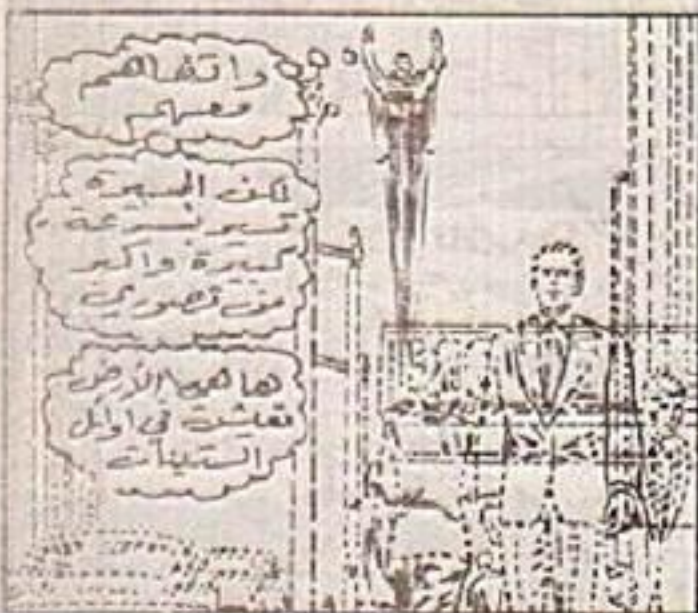 واتفالهم
معهم
لكن المسيرة
تسير بسرعة
كبيرة واكبر
من تصوري
ها هي الأرض
تعيش في اوائل
الستينات